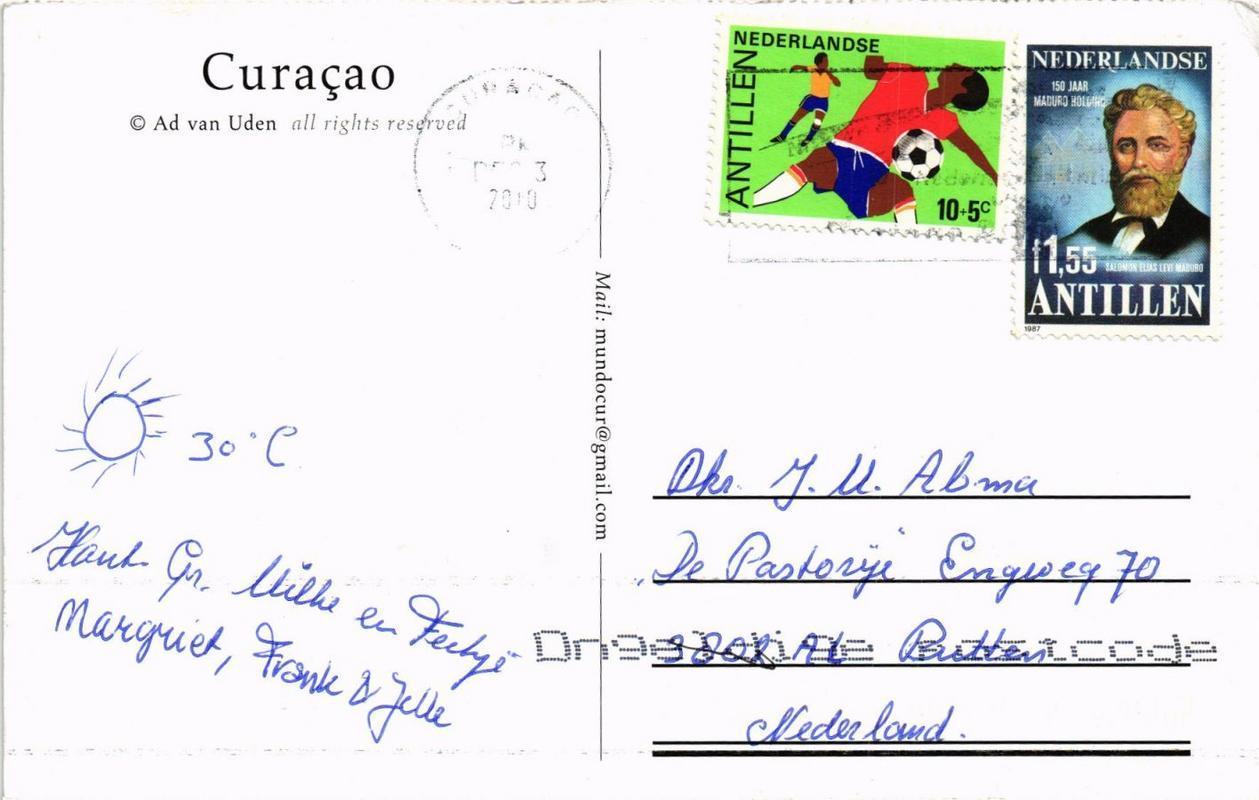 Curaçao
© Ad van Uden all rights reserved
CURAÇAO
DEC 3
2010
NEDERLANDSE
ANTILLEN
10+5c
NEDERLANDSE
150 JAAR
MADURO HOLDING
f1,55
SALOMON ELIAS LEVI MADURO
ANTILLEN
1987
Mail: mundocur@gmail.com
30°C
Hart. Gr. Milke en Feikje
Margriet, Frank & Jelle
Dhr. J. U. Abma
"De Pastorije" Engweg 70
AL Putten
Ongeldige postcode
Nederland.